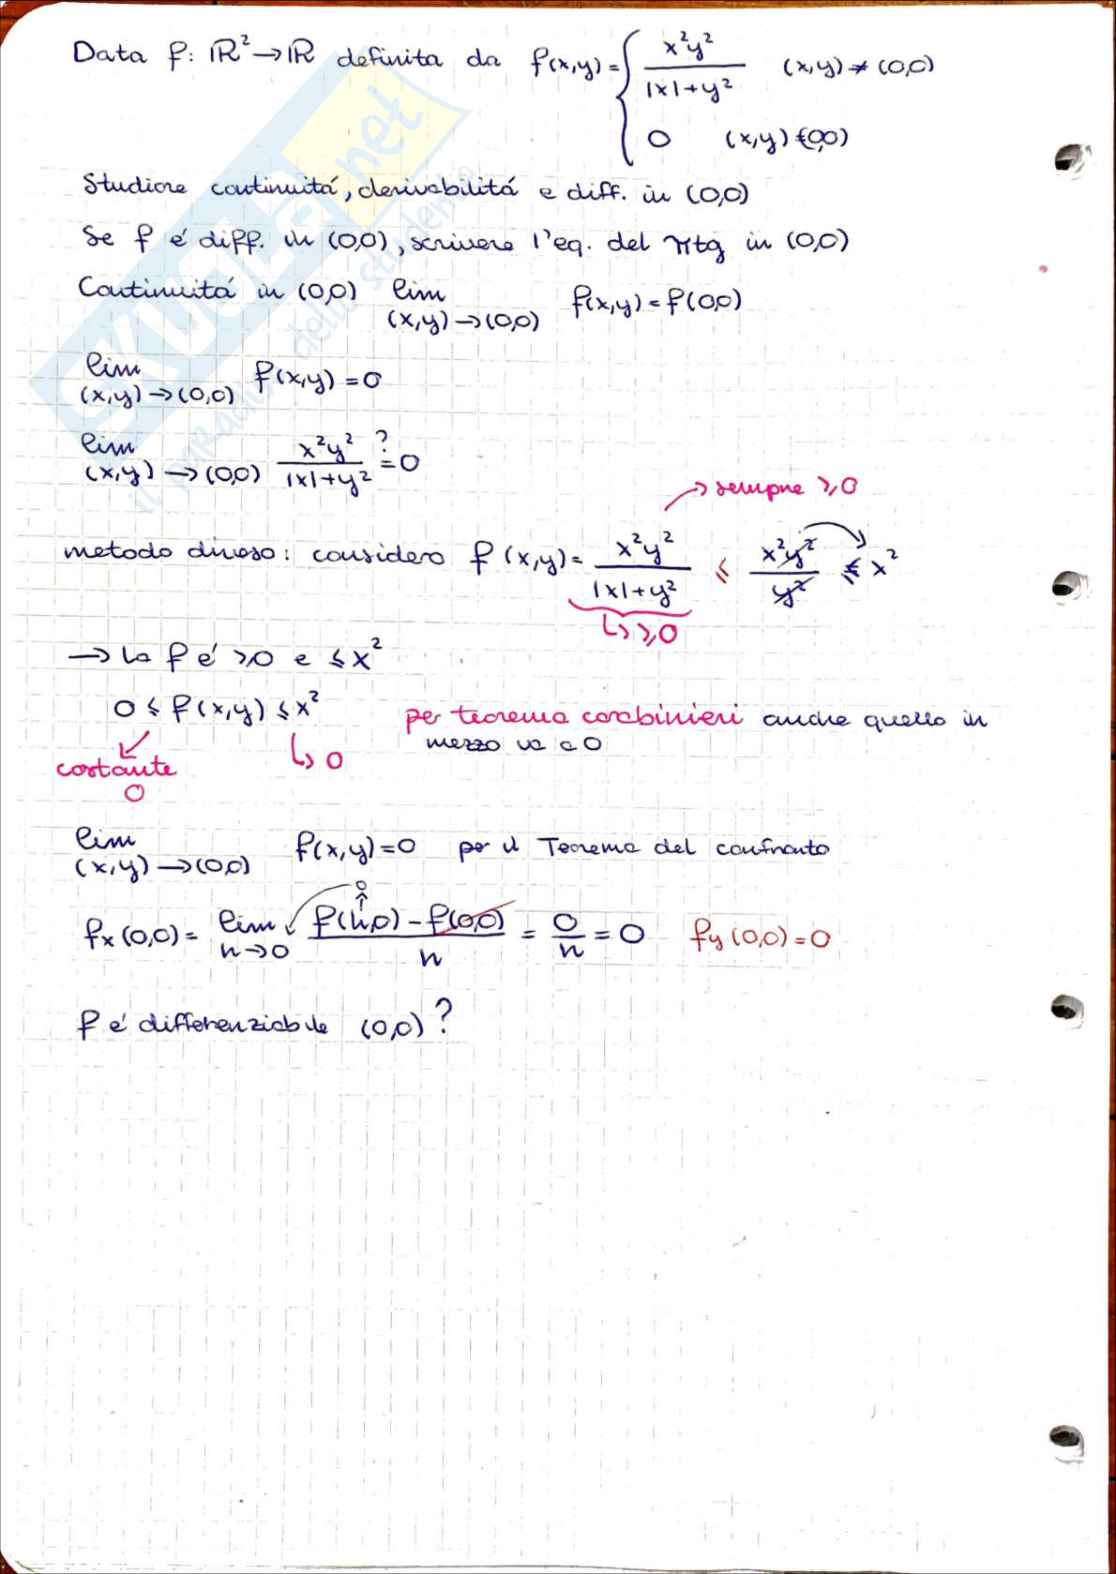 Data f: ℝ²→ℝ definita da f(x,y)= { x²y² / |x|+y² (x,y)≠(0,0)
0 (x,y)=(0,0)
Studiare continuitá, derivabilitá e diff. in (0,0)
Se f é diff. in (0,0), scrivere l'eq. del πtg in (0,0)
Continuitá in (0,0) lim (x,y)→(0,0) f(x,y)=f(0,0)
lim (x,y)→(0,0) f(x,y)=0
lim (x,y)→(0,0) x²y² / |x|+y² ?= 0
→ sempre ≥0
metodo diverso: considero f(x,y)= x²y² / |x|+y² ≤ x²y² / y² ≤ x²
↳ ≥0
→ la f é ≥0 e ≤x²
0 ≤ f(x,y) ≤ x²
per teorema carabinieri anche quello in
mezzo va a 0
costante
0
↳ 0
lim (x,y)→(0,0) f(x,y)=0 per il Teorema del confronto
0
fx(0,0)= lim h→0 f(h,0)-f(0,0) / h = 0/h = 0 fy(0,0)=0
f é differenziabile (0,0)?
SKUOLA.net
il paradiso dello studente